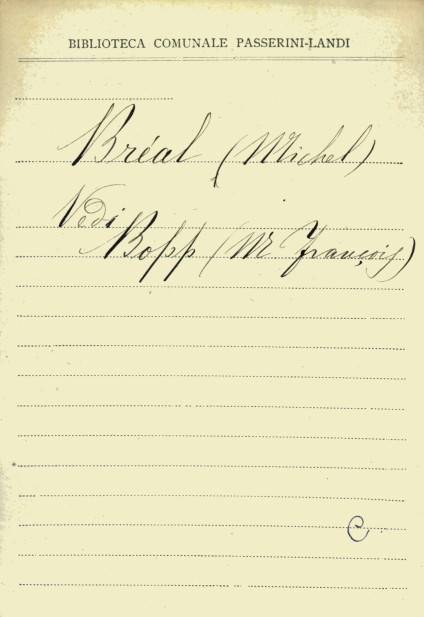 BIBLIOTECA COMUNALE PASSERINI-LANDI
Bréal (Michel)
Vedi
Bopp (Mr François)
C